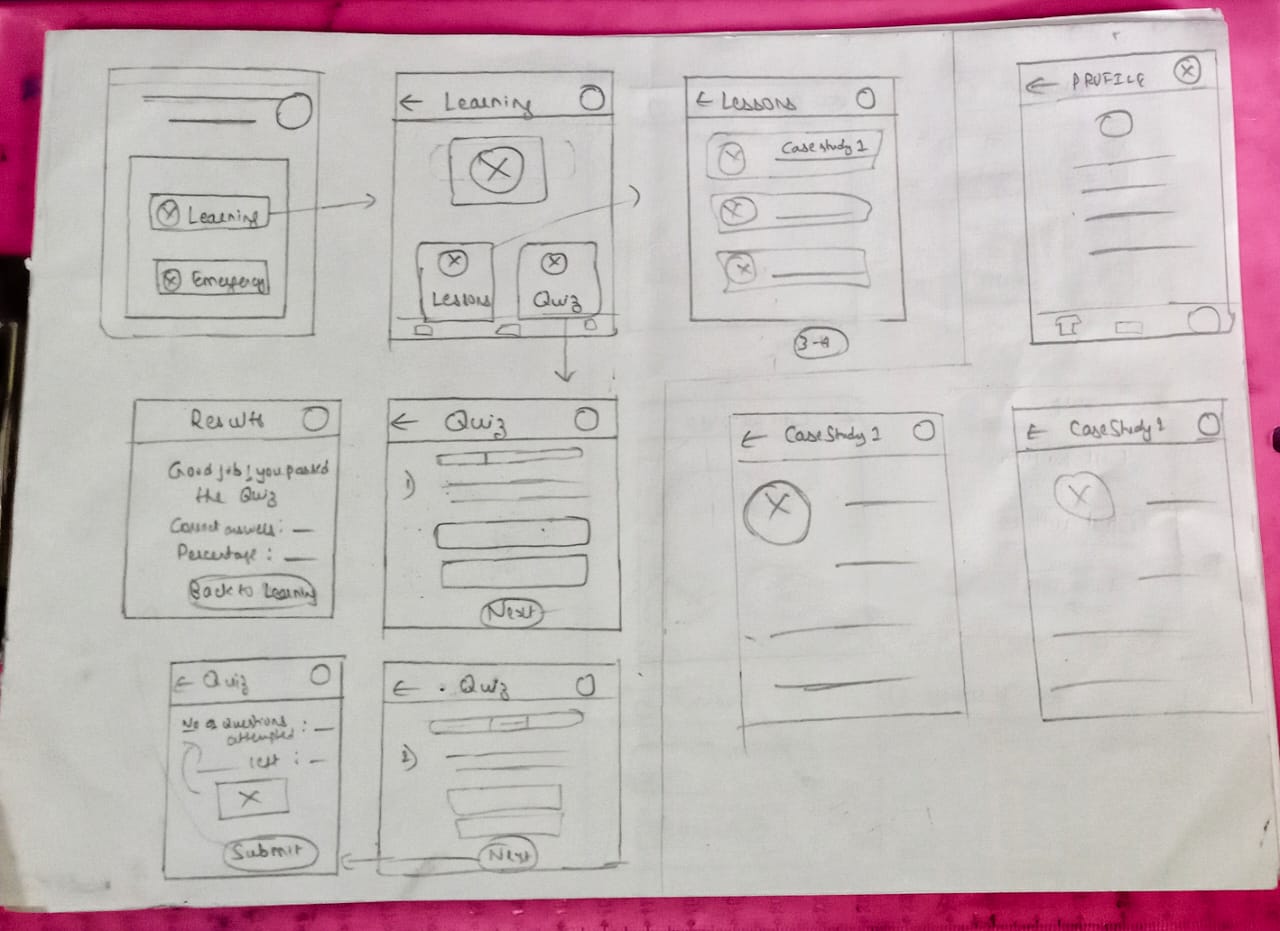 Learning
Emergency
← Learning
Lessons
Quiz
← Lessons
Case study 1
3-4
← PROFILE
Results
Good job! you passed
the Quiz
Correct answers: —
Percentage: —
Back to Learning
← Quiz
1)
Next
← Case Study 1
← Case Study 1
← Quiz
No of Questions
attempted : —
left : —
Submit
← Quiz
2)
Next